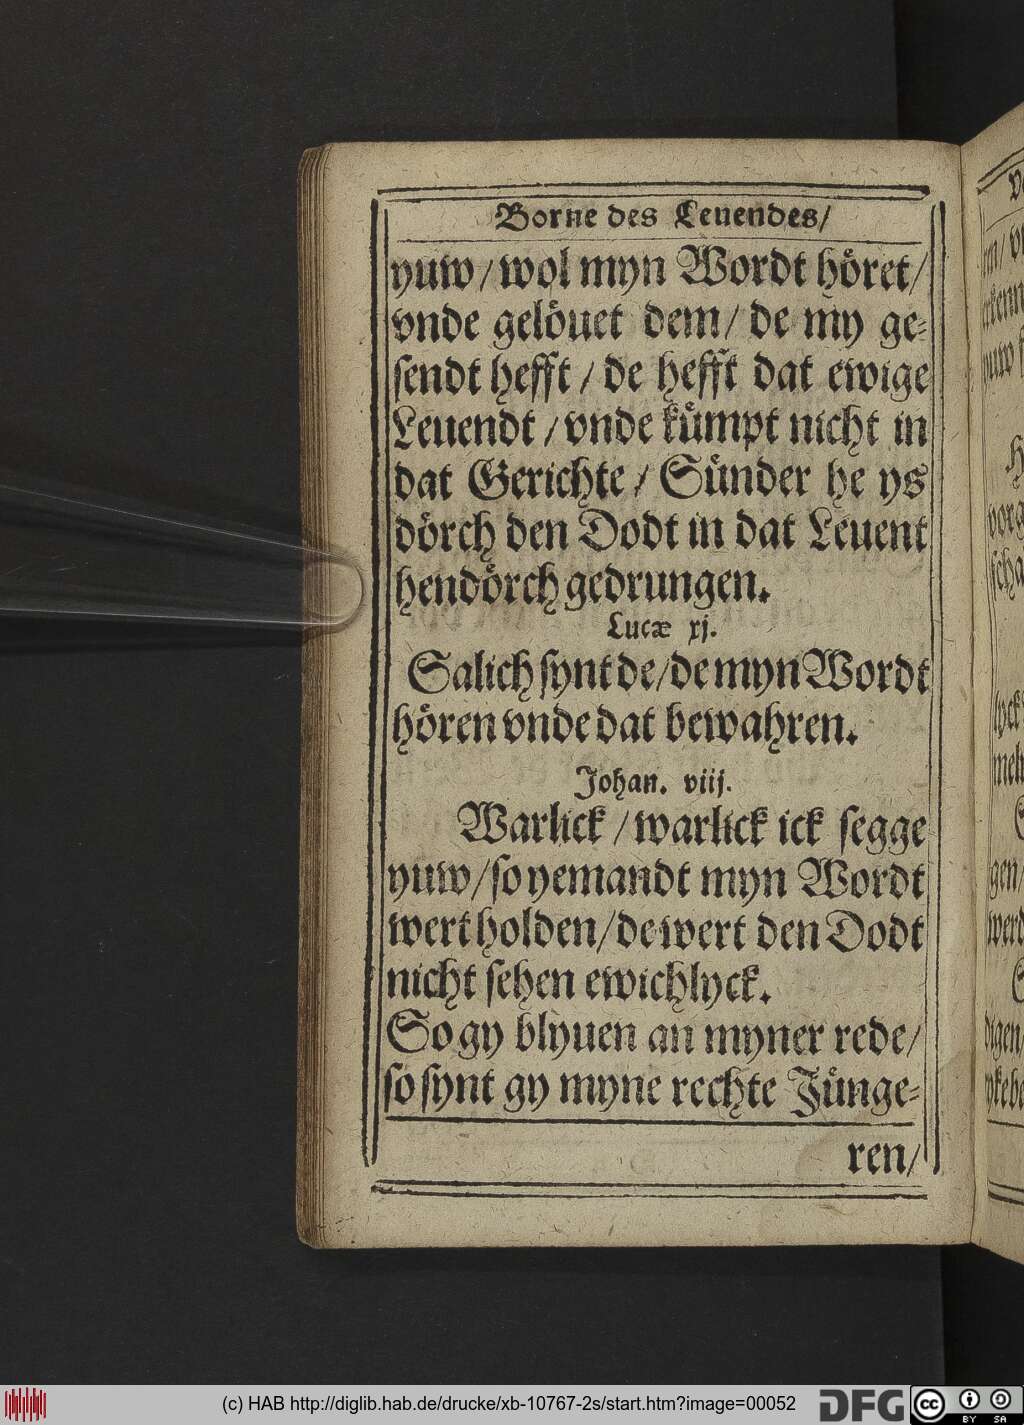 Borne des Leuendes/
yuw/ wol myn Wordt höret/
vnde gelöuet dem/ de my ge-
sendt hefft/ de hefft dat ewige
Leuendt/ vnde kümpt nicht in
dat Gerichte/ Sünder he ys
dörch den Dodt in dat Leuent
hendörch gedrungen.
Lucæ xj.
Salich synt de/ de myn Wordt
hören vnde dat bewahren.
Johan. viij.
Warlick/ warlick ick segge
yuw/ so yemandt myn Wordt
wert holden/ de wert den Dodt
nicht sehen ewichlyck.
So gy blyuen an myner rede/
so synt gy myne rechte Jünge-
ren/
(c) HAB http://diglib.hab.de/drucke/xb-10767-2s/start.htm?image=00052
DFG
cc BY SA